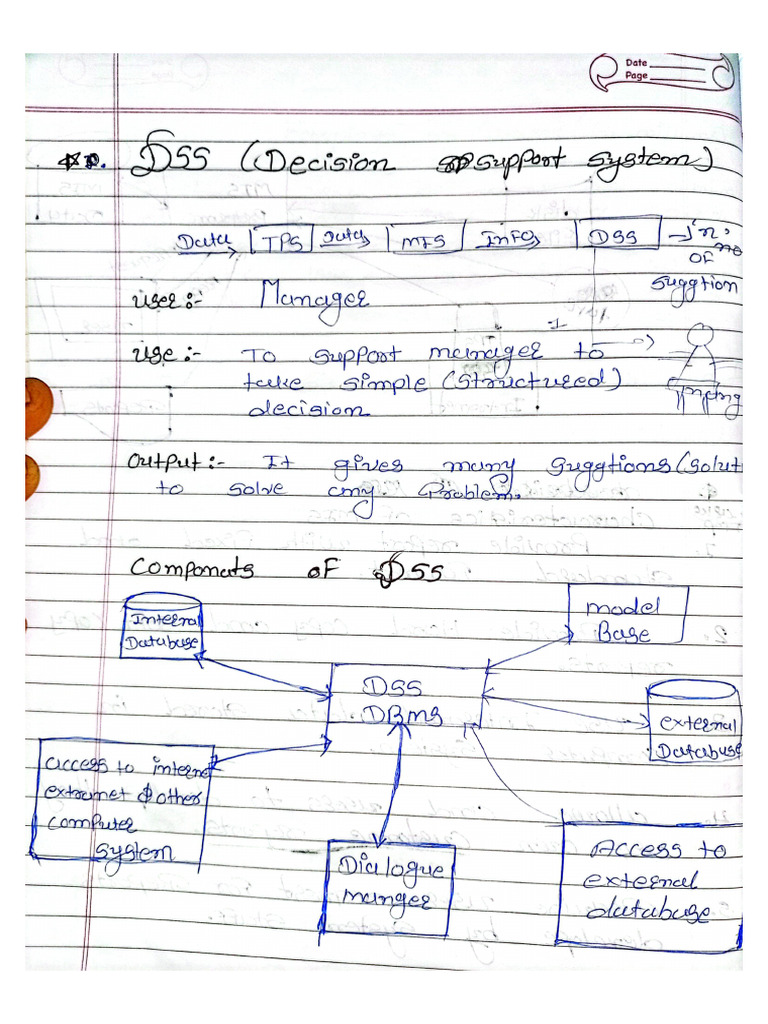 Date
Page
DSS (Decision support system)
Data TPS Data MIS Info DSS n.
no
of
suggtion
user:- Manager
use:- To support manager to
take simple (structured)
decision
output:- It gives many suggtions (solut
to solve any Problem.
Componats of DSS
Internal
Database
model
Base
DSS
DBMS
external
Database
access to interne
extranet & other
computer
system
Dialogue
manger
Access to
external
database